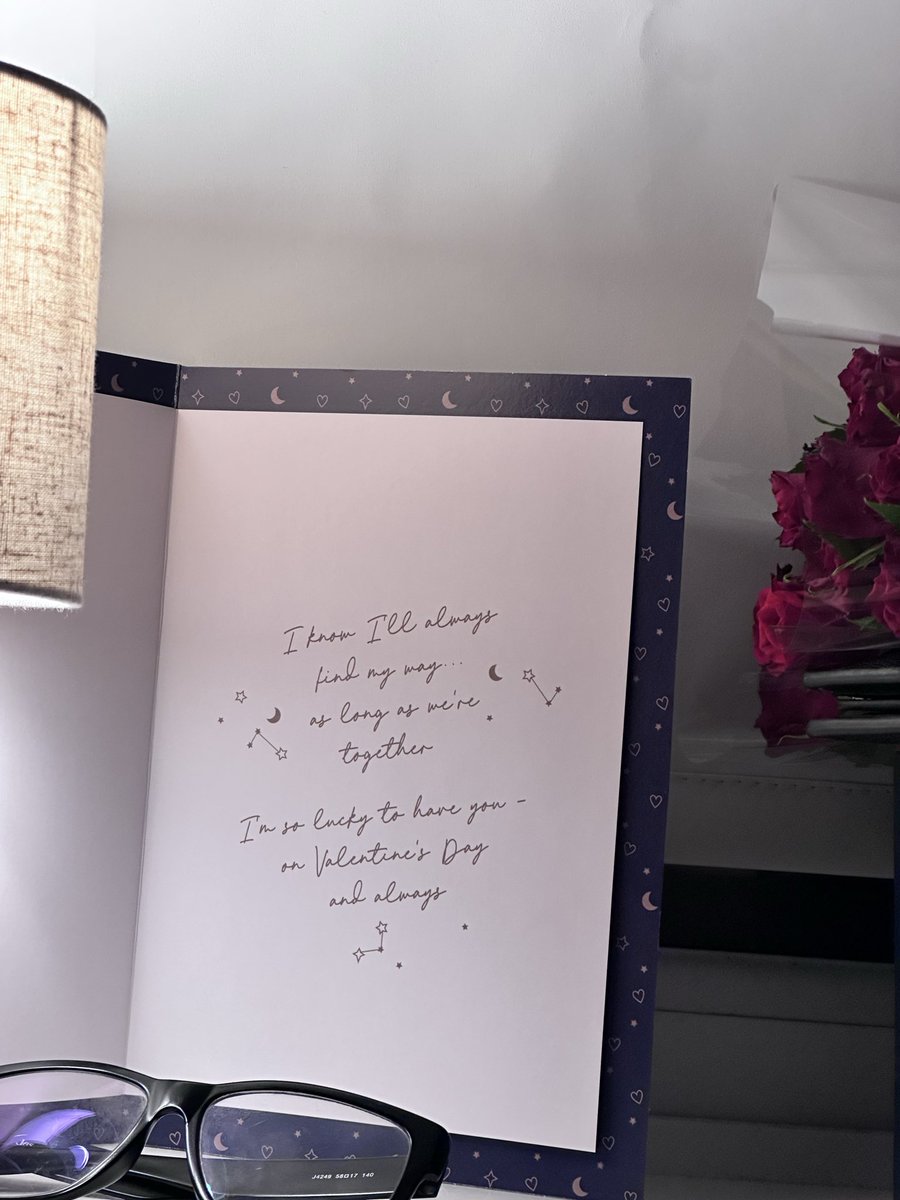 I know I'll always
find my way...
as long as we're
together
I'm so lucky to have you -
on Valentine's Day
and always
J4249 56□17 140